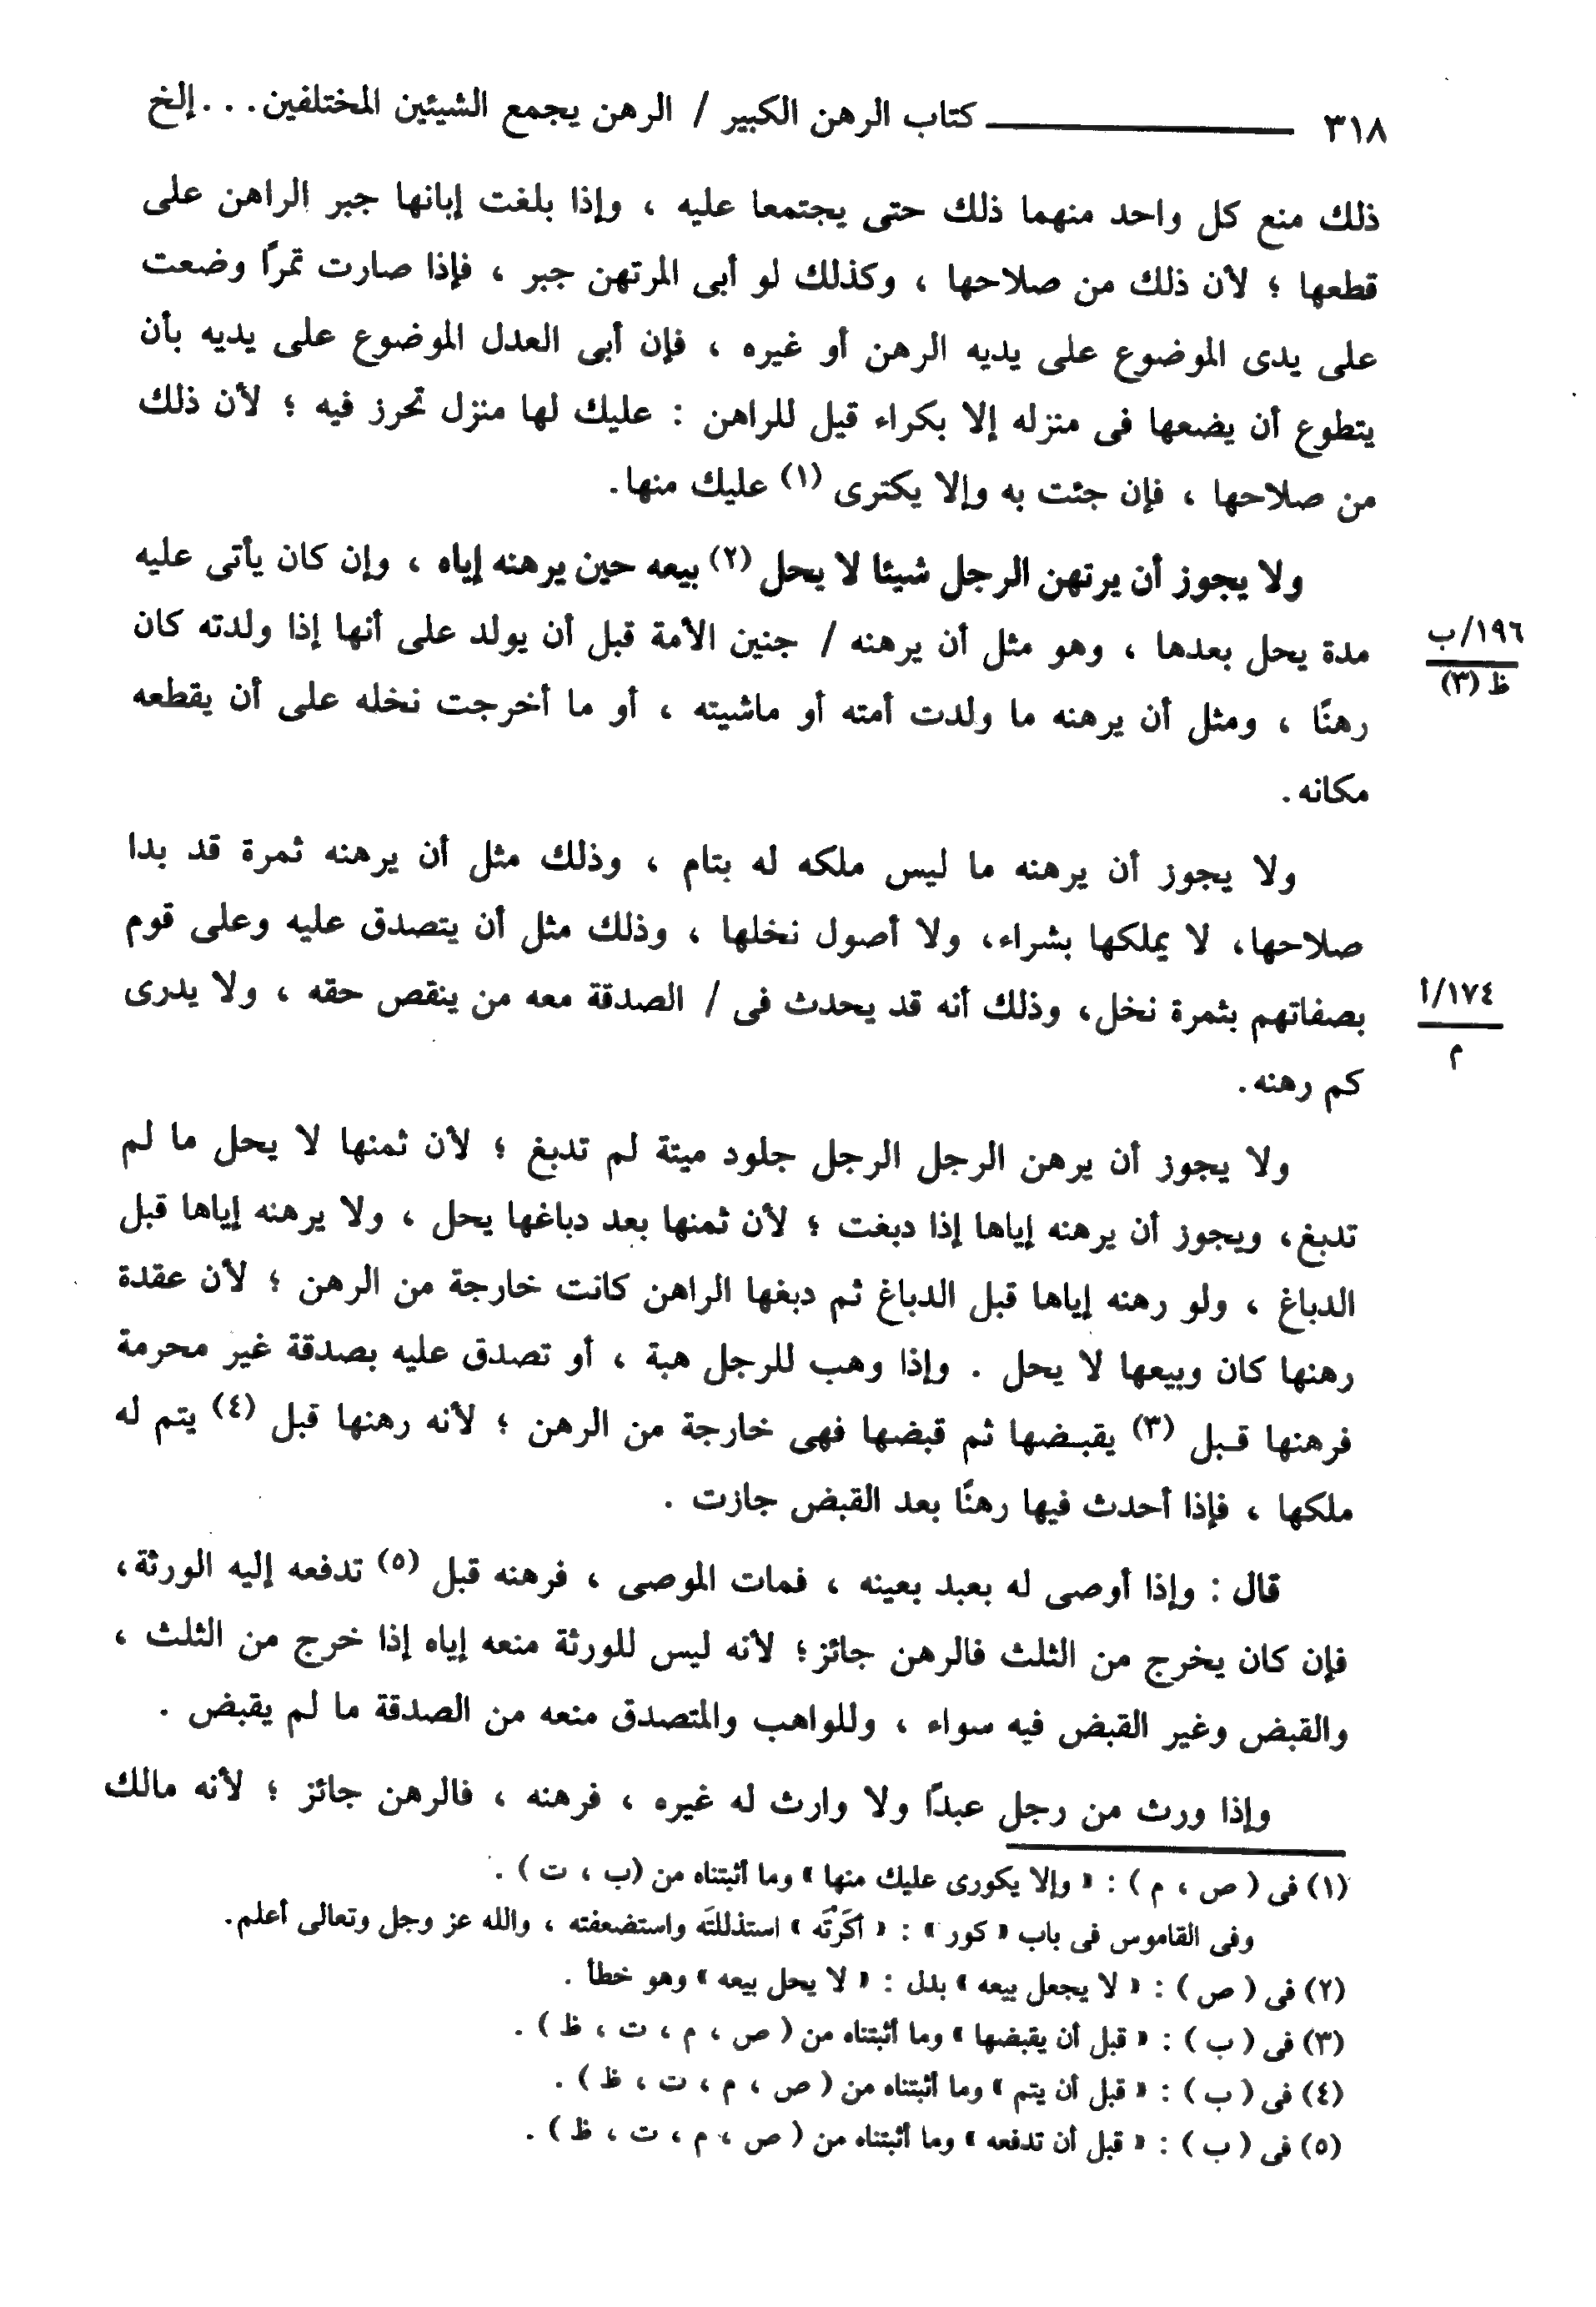 ٣١٨ ــــــــــــــ كتاب الرهن الكبير / الرهن يجمع الشيئين المختلفين . . . إلخ
ذلك منع كل واحد منهما ذلك حتى يجتمعا عليه ، وإذا بلغت إبانها جبر الراهن على
قطعها ؛ لأن ذلك من صلاحها ، وكذلك لو أبى المرتهن جبر ، فإذا صارت تمرًا وضعت
على يدى الموضوع على يديه الرهن أو غيره ، فإن أبى العدل الموضوع على يديه بأن
يتطوع أن يضعها فى منزله إلا بكراء قيل للراهن : عليك لها منزل تحرز فيه ؛ لأن ذلك
من صلاحها ، فإن جئت به وإلا يكترى (١) عليك منها .
ولا يجوز أن يرتهن الرجل شيئا لا يحل (٢) بيعه حين يرهنه إياه ، وإن كان يأتى عليه
مدة يحل بعدها ، وهو مثل أن يرهنه / جنين الأمة قبل أن يولد على أنها إذا ولدته كان
١٩٦/ب
ظ (٣)
رهنًا ، ومثل أن يرهنه ما ولدت أمته أو ماشيته ، أو ما أخرجت نخله على أن يقطعه
مكانه .
ولا يجوز أن يرهنه ما ليس ملكه له بتام ، وذلك مثل أن يرهنه ثمرة قد بدا
صلاحها، لا يملكها بشراء، ولا أصول نخلها ، وذلك مثل أن يتصدق عليه وعلى قوم
بصفاتهم بثمرة نخل، وذلك أنه قد يحدث فى / الصدقة معه من ينقص حقه ، ولا يدرى
١٧٤/أ
م
كم رهنه .
ولا يجوز أن يرهن الرجل الرجل جلود ميتة لم تدبغ ؛ لأن ثمنها لا يحل ما لم
تدبغ، ويجوز أن يرهنه إياها إذا دبغت ؛ لأن ثمنها بعد دباغها يحل ، ولا يرهنه إياها قبل
الدباغ ، ولو رهنه إياها قبل الدباغ ثم دبغها الراهن كانت خارجة من الرهن ؛ لأن عقدة
رهنها كان وبيعها لا يحل . وإذا وهب للرجل هبة ، أو تصدق عليه بصدقة غير محرمة
فرهنها قبل (٣) يقبضها ثم قبضها فهى خارجة من الرهن ؛ لأنه رهنها قبل (٤) يتم له
ملكها ، فإذا أحدث فيها رهنًا بعد القبض جازت .
قال : وإذا أوصى له بعبد بعينه ، فمات الموصى ، فرهنه قبل (٥) تدفعه إليه الورثة،
فإن كان يخرج من الثلث فالرهن جائز؛ لأنه ليس للورثة منعه إياه إذا خرج من الثلث ،
والقبض وغير القبض فيه سواء ، وللواهب والمتصدق منعه من الصدقة ما لم يقبض .
وإذا ورث من رجل عبدًا ولا وارث له غيره ، فرهنه ، فالرهن جائز ؛ لأنه مالك
(١) فى ( ص ، م ) : « وإلا يكورى عليك منها » وما أثبتناه من (ب ، ت ) .
وفى القاموس فى باب « كور » : « أَكَرْتَه » استذللتَه واستضعفته ، والله عز وجل وتعالى أعلم.
(٢) فى ( ص ) : « لا يجعل بيعه » بدل : « لا يحل بيعه » وهو خطأ .
(٣) فى ( ب ) : « قبل أن يقبضها » وما أثبتناه من ( ص ، م ، ت ، ظ ) .
(٤) فى ( ب ) : « قبل أن يتم » وما أثبتناه من ( ص ، م ، ت ، ظ ) .
(٥) فى ( ب ) : « قبل أن تدفعه » وما أثبتناه من ( ص ، م ، ت ، ظ ) .